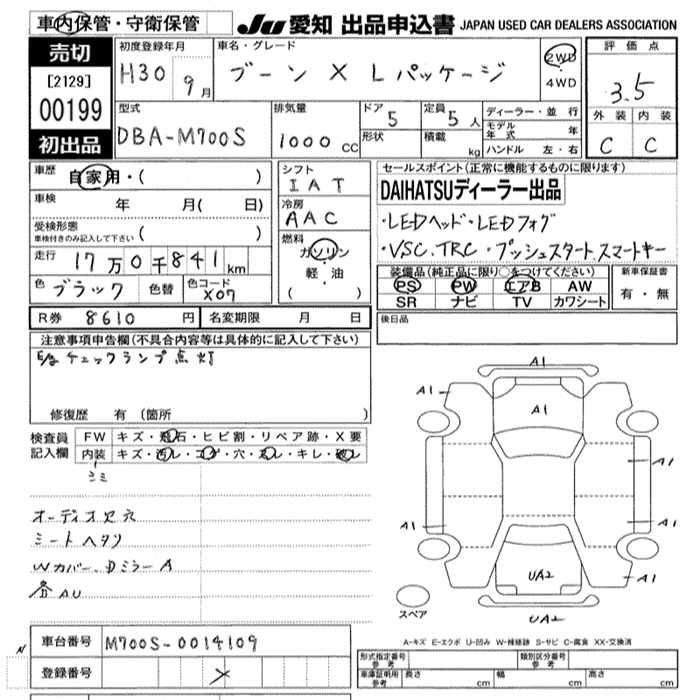 車内保管・守衛保管
JU 愛知 出品申込書 JAPAN USED CAR DEALERS ASSOCIATION
売切
[2129]
00199
初出品
初度登録年月
H30 9月
車名・グレード
ブーン X Lパッケージ
2WD
4WD
評価点
3.5
外装 内装
C C
型式
DBA-M700S
排気量
1000 cc
ドア 5
形状
定員 5人
積載 kg
ディーラー・並行
モデル年式 年
ハンドル 左・右
車歴 自家用・( )
車検 年 月( 日)
受検形態
車検付きのみ記入して下さい ( )
走行 17万0千841km
色 ブラック 色替 色コード X07
シフト
IAT
冷房
AAC
燃料
ガソリン
軽・油
( )
セールスポイント(正常に機能するものに限ります)
DAIHATSUディーラー出品
・LEDヘッド・LEDフォグ
・VSC.TRC・プッシュスタート.スマートキー
装備品(純正品に限り○をつけてください)
PS PW エアB AW
SR ナビ TV カワシート
新車保証書
有・無
R券 8610円 名変期限 月 日
後日品
注意事項申告欄(不具合内容等は具体的に記入して下さい)
E/g チェックランプ点灯
修復歴 有(箇所 )
検査員記入欄
FW キズ・飛石・ヒビ割・リペア跡・X要
内装 キズ・汚レ・コゲ・穴・スレ・キレ・破レ
シミ
オーディオ欠穴
シートヘタリ
Wカバー、Dミラー A
各AU
A1
A1
A1
A1
A1
A1
A1
A1
UA2
UA2
スペア
A-キズ E-エクボ U-凹み W-補修跡 S-サビ C-腐食 XX-交換済
車台番号 M700S-0014109
登録番号
形式指定番号 参考
類別区分番号 参考
車庫証明用 参考 長さ cm 幅 cm 高さ cm